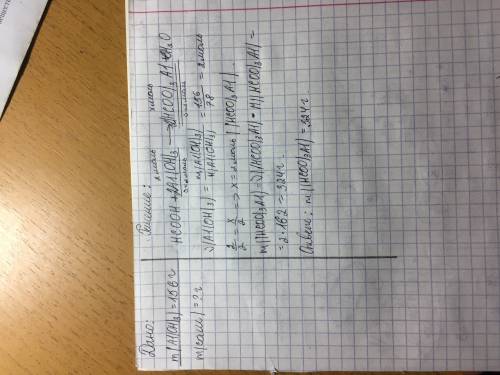 Дано:
m(Al(OH)3)=156 г
m(соли)=? г
Решение:
2 моль x моль
HCOOH+2Al(OH)3→2(HCOO)3Al+H2O
2 моль 2 моль
ν(Al(OH)3)=m(Al(OH)3)/M(Al(OH)3)=156/78=2 моль
2/2=x/2=>x=2 моль((HCOO)3Al)
m((HCOO)3Al)=ν((HCOO)3Al)·M((HCOO)3Al)=
=2·162=324 г.
Ответ: m((HCOO)3Al)=324 г.